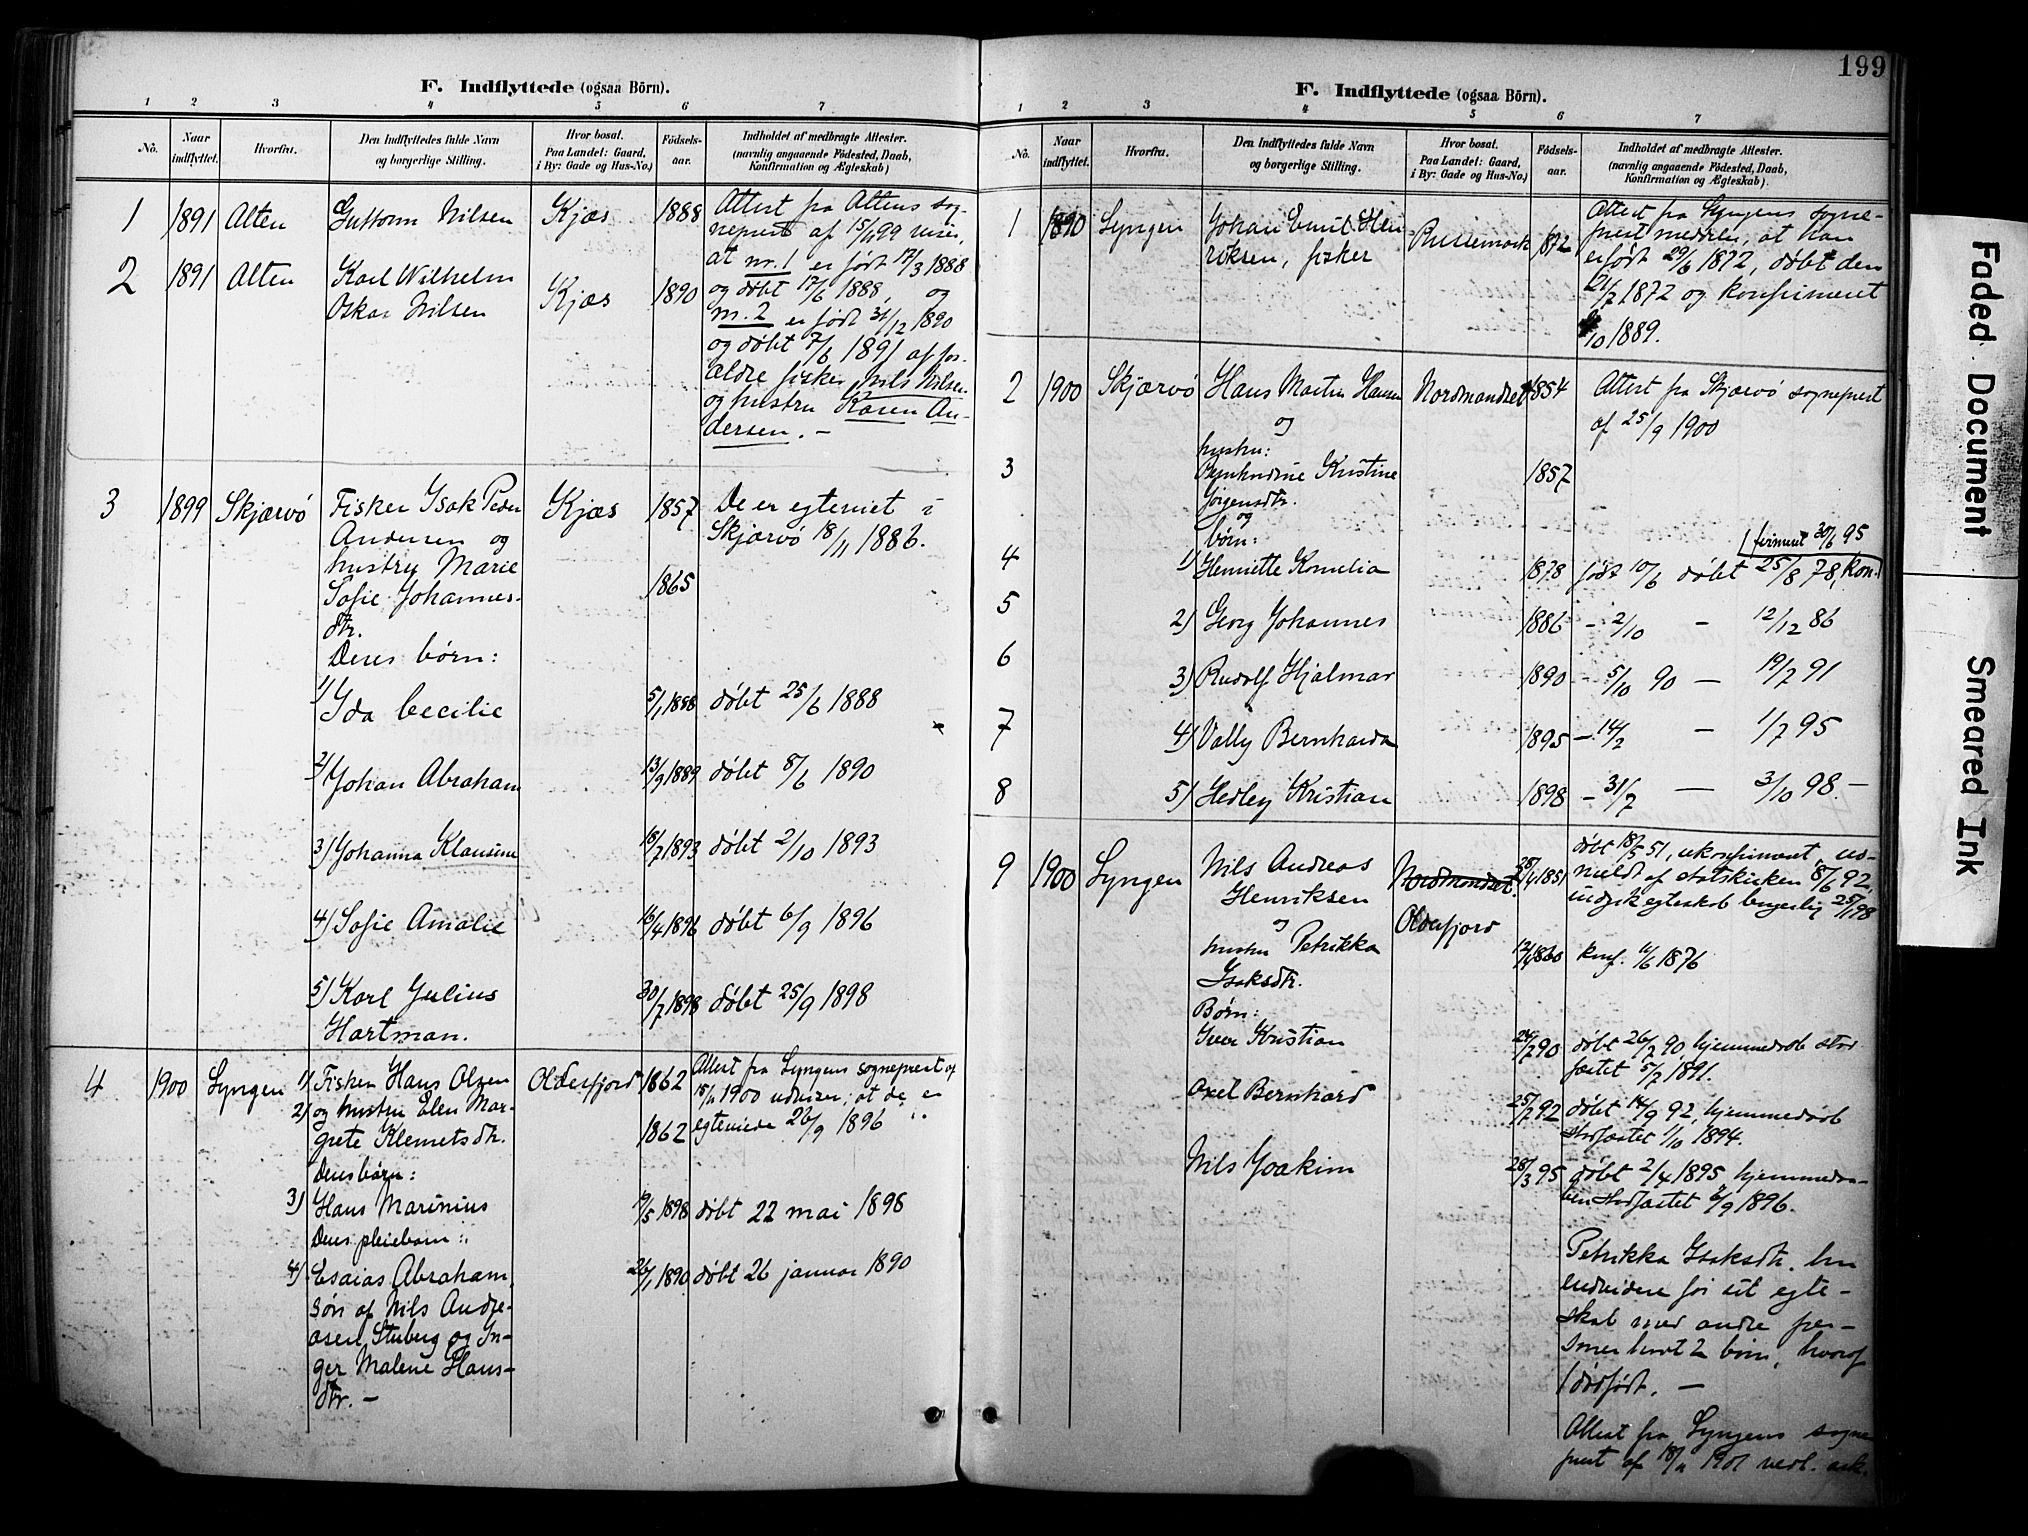 199
F. Indflyttede (ogsaa Börn).
1 2 3 4 5 6 7
No. Naar indflyttet. Hvorfra. Den Indflyttedes fulde Navn og borgerlige Stilling. Hvor bosat. Paa Landet: Gaard, i By: Gade og Hus-No.) Födsels-aar. Indholdet af medbragte Attester. (navnlig angaaende Födested, Daab, Konfirmation og Ægteskab)
1 1891 Alten Guttorm Nilsen Kjæs 1888 Attest fra Altens sog-
nepræst af 15/11 99 viser,
at nr. 1 er født 17/3 1888
og døbt 17/6 1888, og
2 1891 Alten Karl Wilhelm
Oskar Nilsen Kjæs 1890
nr. 2 er født 31/12 1890
og døbt 7/6 1891 af for-
ældre fisker Nils Nilsen
og hustru Karen An-
dersen. –
3 1899 Skjærvö Fisker Isak Peder Kjæs 1857 De er egteviet i
Andersen og Skjærvö 18/11 1886.
hustru Marie 1865
Sofie Johannes-
dtr.
Deres børn:
1) Ida Cecilie 5/1 1888 døbt 25/6 1888
2) Johan Abraham 13/9 1889 døbt 8/6 1890
3) Johanna Klausine 18/7 1893 døbt 2/10 1893
4) Sofie Amalie 16/4 1896 døbt 6/9 1896
5) Karl Julius 30/7 1898 døbt 25/9 1898
Hartman.
4 1900 Lyngen 1) Fisker Hans Olsen Olderfjord 1862 Attest fra Lyngens sognepræst af
2) og hustru Elen Mar- 15/11 1900 udviser, at de er
grete Klemetsdtr. 1862 egteviede 26/9 1896
Deres børn:
3) Hans Marinius 9/5 1898 døbt 22 mai 1898
Deres pleiebarn:
4) Esaias Abraham, 26/1 1890 døbt 26 januar 1890
søn af Nils Andre-
asen Stuberg og In-
ger Malene Hans-
dtr. –
F. Indflyttede (ogsaa Börn).
1 2 3 4 5 6 7
No. Naar indflyttet. Hvorfra. Den Indflyttedes fulde Navn og borgerlige Stilling. Hvor bosat. Paa Landet: Gaard, i By: Gade og Hus-No.) Födsels-aar. Indholdet af medbragte Attester. (navnlig angaaende Födested, Daab, Konfirmation og Ægteskab).
1 1890 Lyngen Johan Emil Hen- Russemark 1872 Attest fra Lyngens sogne-
riksen, fisker præst meddeler, at han
er født 29/6 1872, døbt den
21/7 1872 og konfirmeret
/10 1889.
2 1900 Skjærvö Hans Martin Hansen Nordmandset 1854 Attest fra Skjærvö sognepræst
og af 25/9 1900
hustru:
3 Kristine 1857
Jørgensdtr.
og
børn: firmeret 30/6 95
4 1) Henriette Kornelia 1878 født 10/6 døbt 25/8 78, kon-
5 2) Georg Johannes 1886 – 2/10 – 12/12 86
6 3) Rudolf Hjalmar 1890 – 5/10 90 – 19/7 91
7 4) Vally Bernharda 1895 – 14/2 – 1/7 95
8 5) Hedley Kristian 1898 – 31/7 – 3/10 98 –
9 1900 Lyngen Nils Andreas Nordmandset 28/4 1851 døbt 18/5 51, ukonfirmeret, ud-
Henriksen Olderfjord meldt af statskirken 8/6 92,
og indgik egteskab borgerlig 25/11 98
hustru Petrikka 12/4 1860 konf. 11/6 1876
Isaksdtr.
Børn:
Iver Kristian 24/7 90 døbt 26/7 90 hjemmedaab stad-
fæstet 5/7 1891.
Axel Bernhard 25/7 92 døbt 14/9 92, hjemmedaab
stadfæstet 1/10 1894.
Nils Joakim 28/3 95 døbt 2/4 1895, hjemmedaa-
ben stadfæstet 6/9 1896.
Petrikka Isaksdtr. har
endvidere før sit egte-
skab med andre per-
soner havt 2 børn, hvoraf
1 dødfødt. –
Attest fra Lyngens sogne-
præst af 18/11 1901 vedl. ark.
Faded Document
Smeared Ink